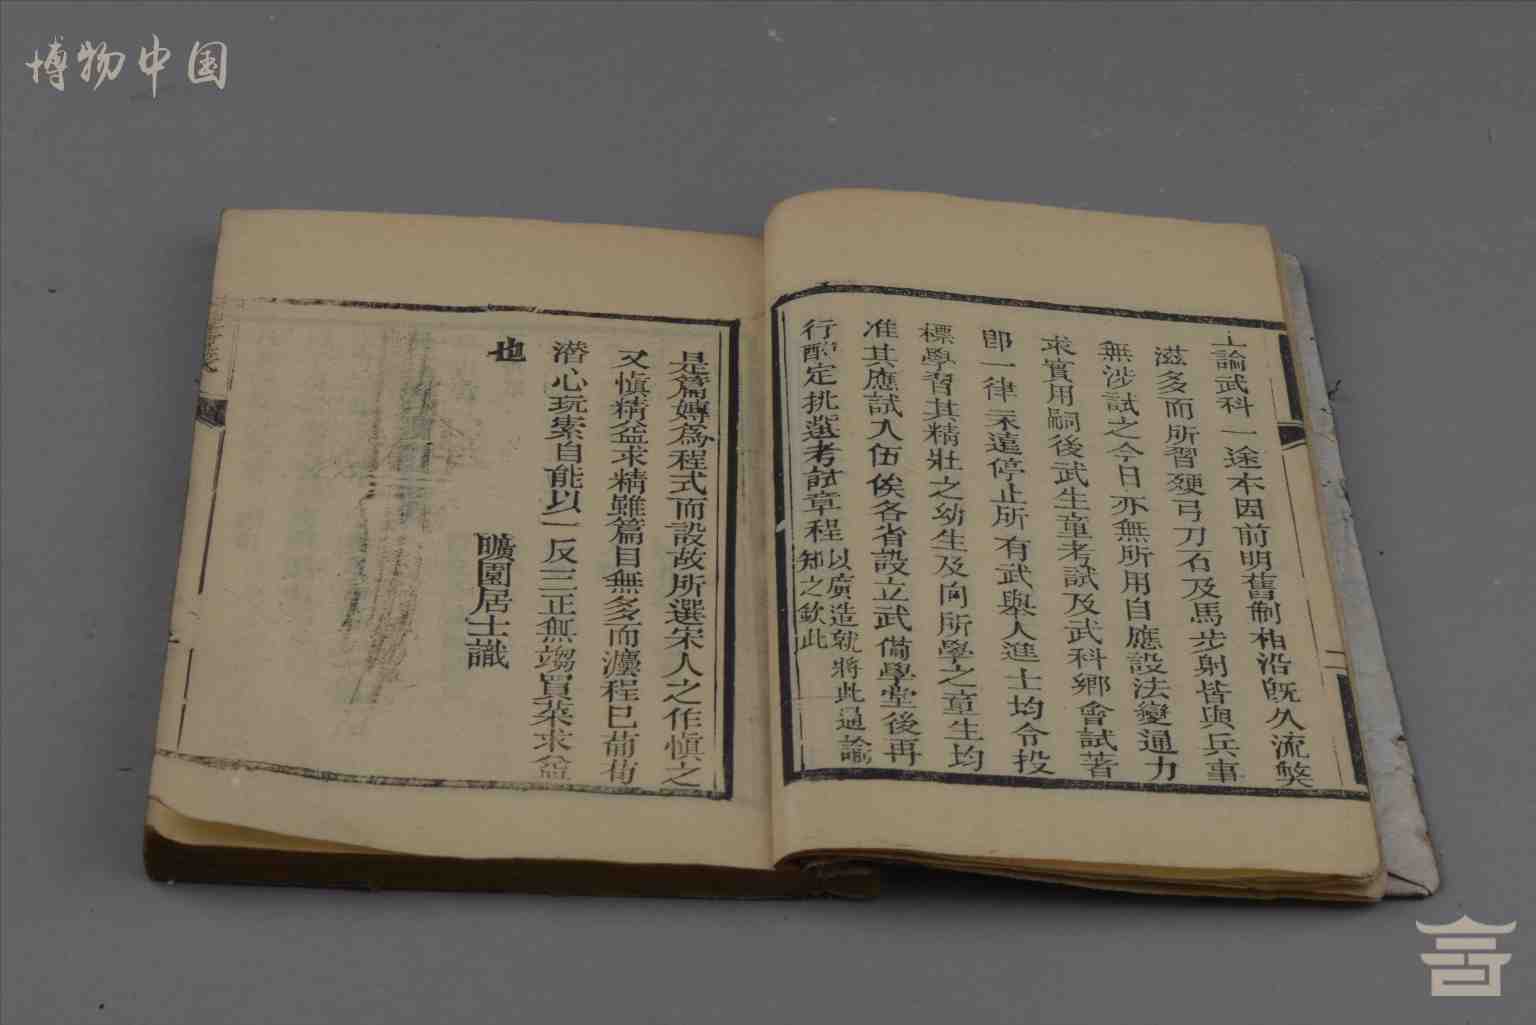 博物中国
上諭武科一途本因前明舊制相沿既久流弊
滋多而所習硬弓刀石及馬步射皆與兵事
無涉試之今日亦無所用自應設法變通力
求實用嗣後武生童考試及武科鄉會試著
即一律永遠停止所有武舉人進士均令投
標學習其精壯之幼生及向所學之童生均
准其應試入伍俟各省設立武備學堂後再
行酌定挑選考試章程以廣造就將此通諭
知之欽此
是篇專為程式而設故所選宋人之作慎之
又慎精益求精雖篇目無多而灋程已葡者
潛心玩索自能以一反三正無竢買菜求益
也
曠園居士識